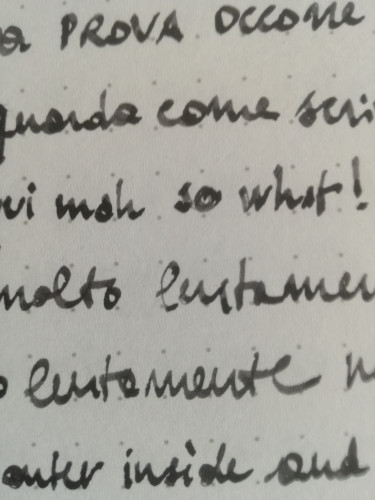 PROVA occorre
guarda come scri
qui mah so what!
molto lentamen
lentamente
outer inside and